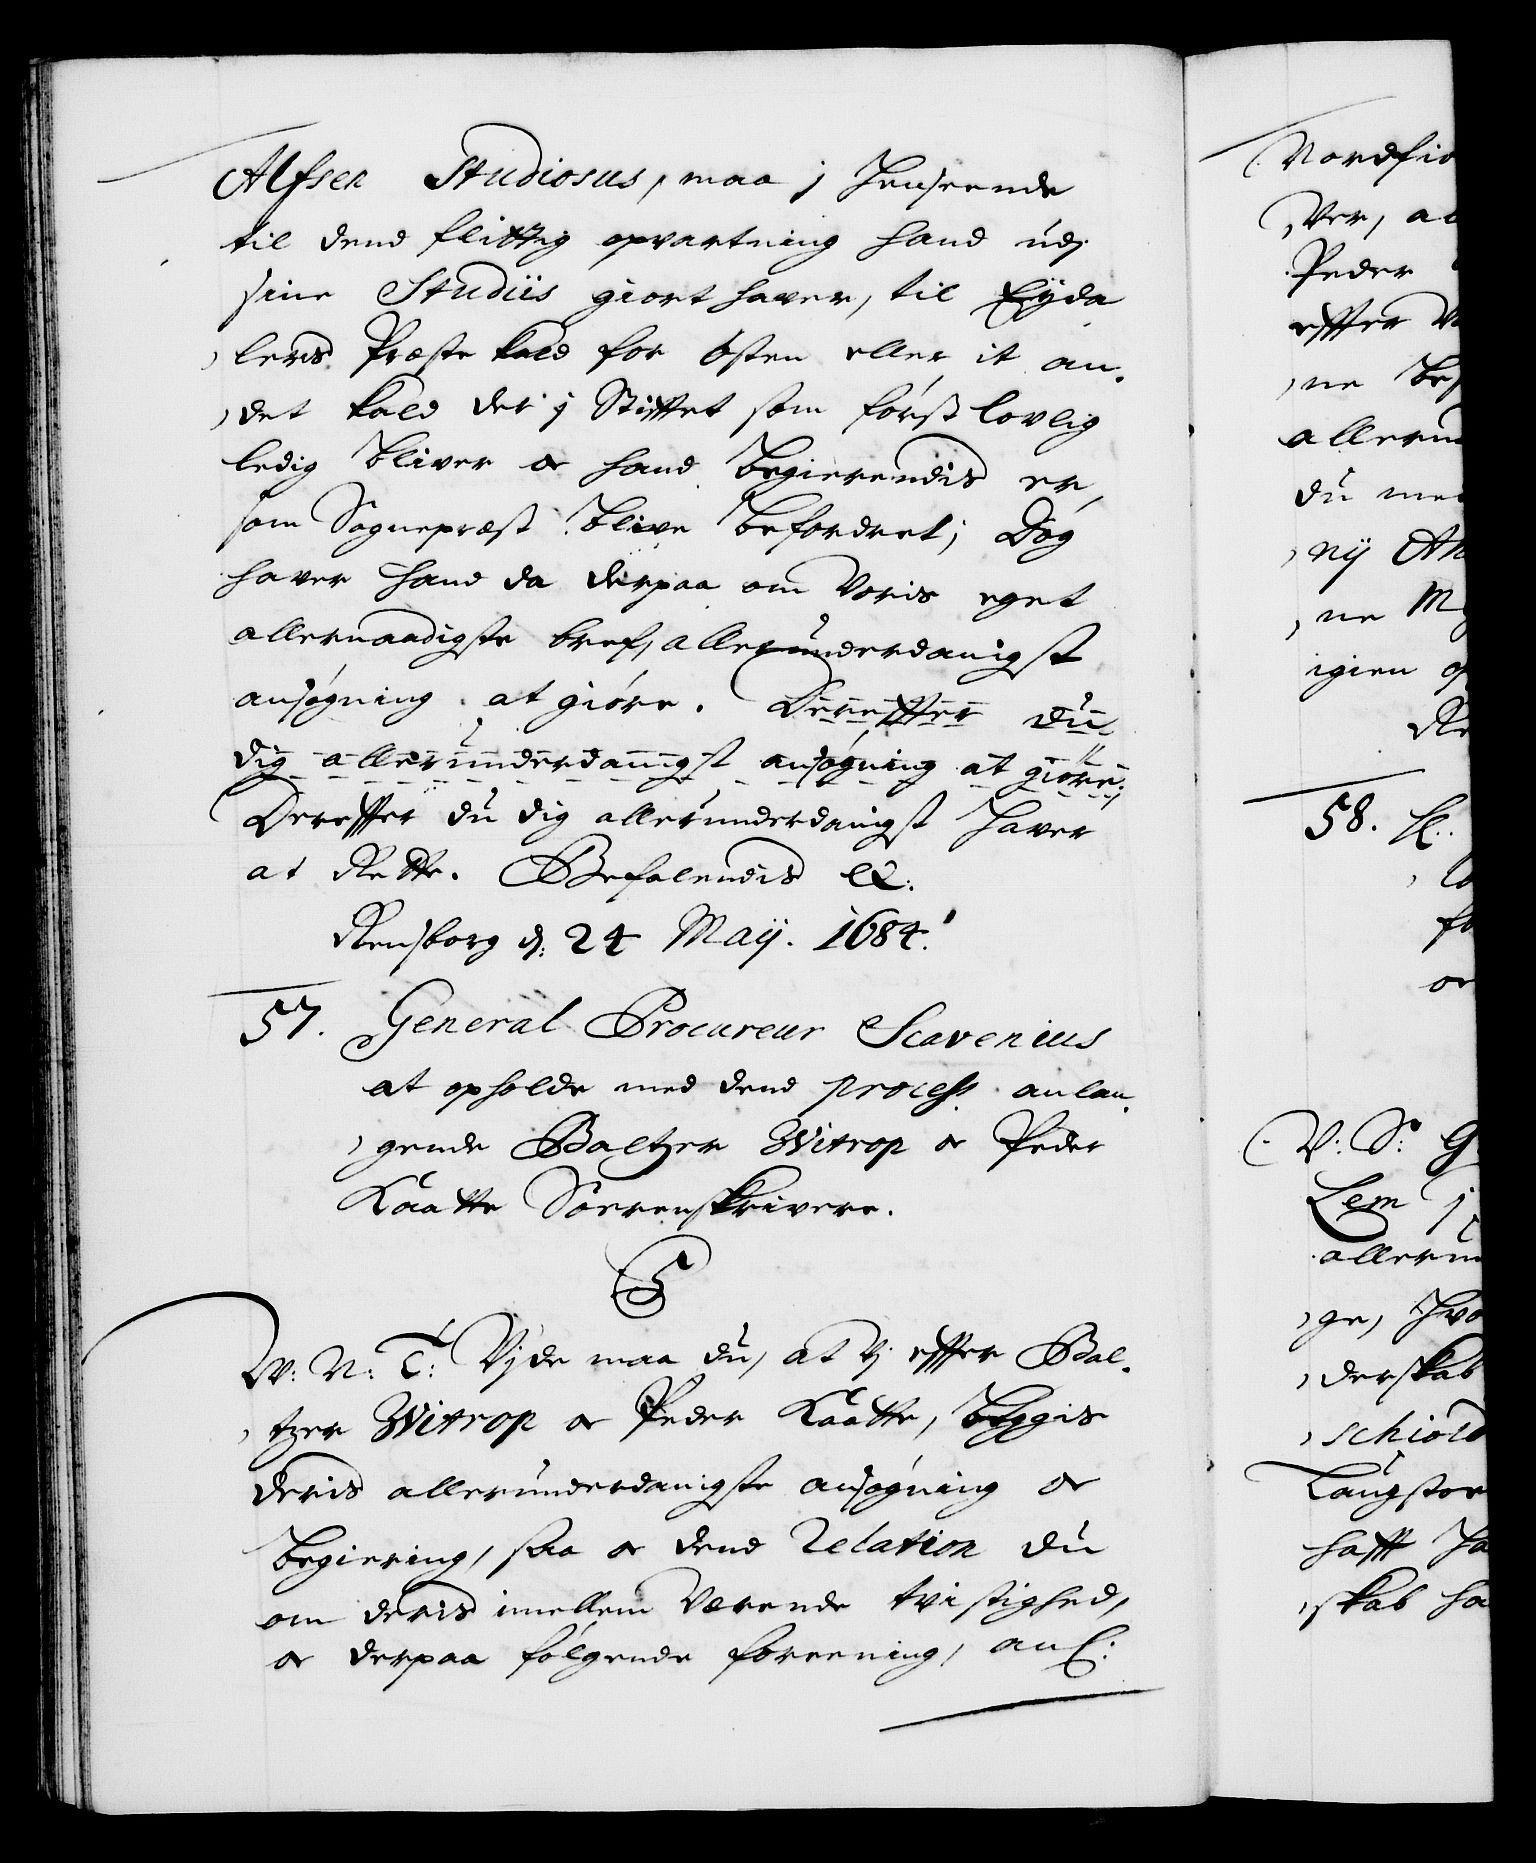 Alfsen Studiosus, maa j Henseende
til dend flittig opvartning hand udj
sine Studiis giort haver, til Eyda
leris Præste kald for Østen eller it an„
„det kald der j Stifftet som først lovlig
ledig bliver oc hand begierendis er,
som Sognepræst blive befordret; Dog
haver hand da derpaa om Voris eget
allernaadigste bref, allerunderdanigst
ansøgning at giøre. Dereffter du
dig allerunderdanigst ansøgning at giøre,
Dereffter du dig allerunderdanigst haver
at Rette. Befalendis etc:
Rensborg d: 24 Maij. 1684.
57. General Procureur Scavenius
at opholde med dend process anlan„
„gende Baltzer Witrop oc Peder
Kaatte Sorenskrivere.
C 5
W: N: T: Vide maa du, at Vj effter Bal„
„tzer Witrop oc Peder Kaatte, beggis
deris allerunderdanigste ansøgning oc
begiering, saa oc dend Relation du
om deris imellem Værende tvistighed,
oc derpaa følgende foreening, anl:
Nordfio
„ver, at
Peder
effter V
„ne be
allerun
du me
„nÿ An
„ne M
igien o
Re
58. H.
fo
oc
V: S: G
Lem j
allerun
„ge, hvo
„derskab
„schiold
Laugstor
hafft ha
„skab ha